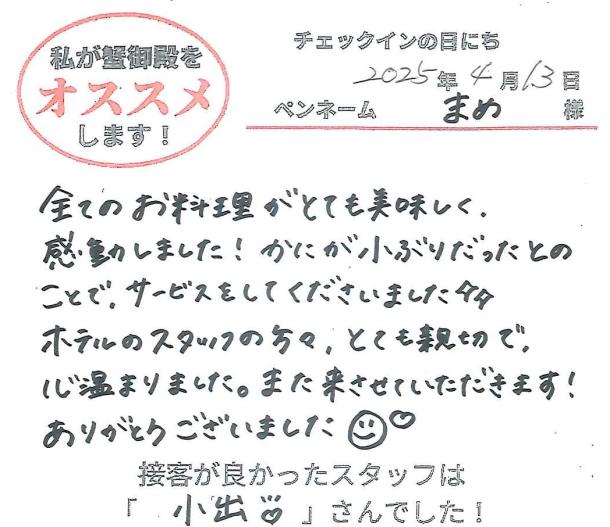 私が蟹御殿を
オススメ
します！
チェックインの日にち
2025年4月13日
ペンネーム まめ 様
全てのお料理がとても美味しく、
感動しました！かにが小ぶりだったとの
ことで、サービスをしてくださいました
ホテルのスタッフの方々、とても親切で、
心温まりました。また来させていただきます！
ありがとうございました
接客が良かったスタッフは
「 小出 」さんでした！